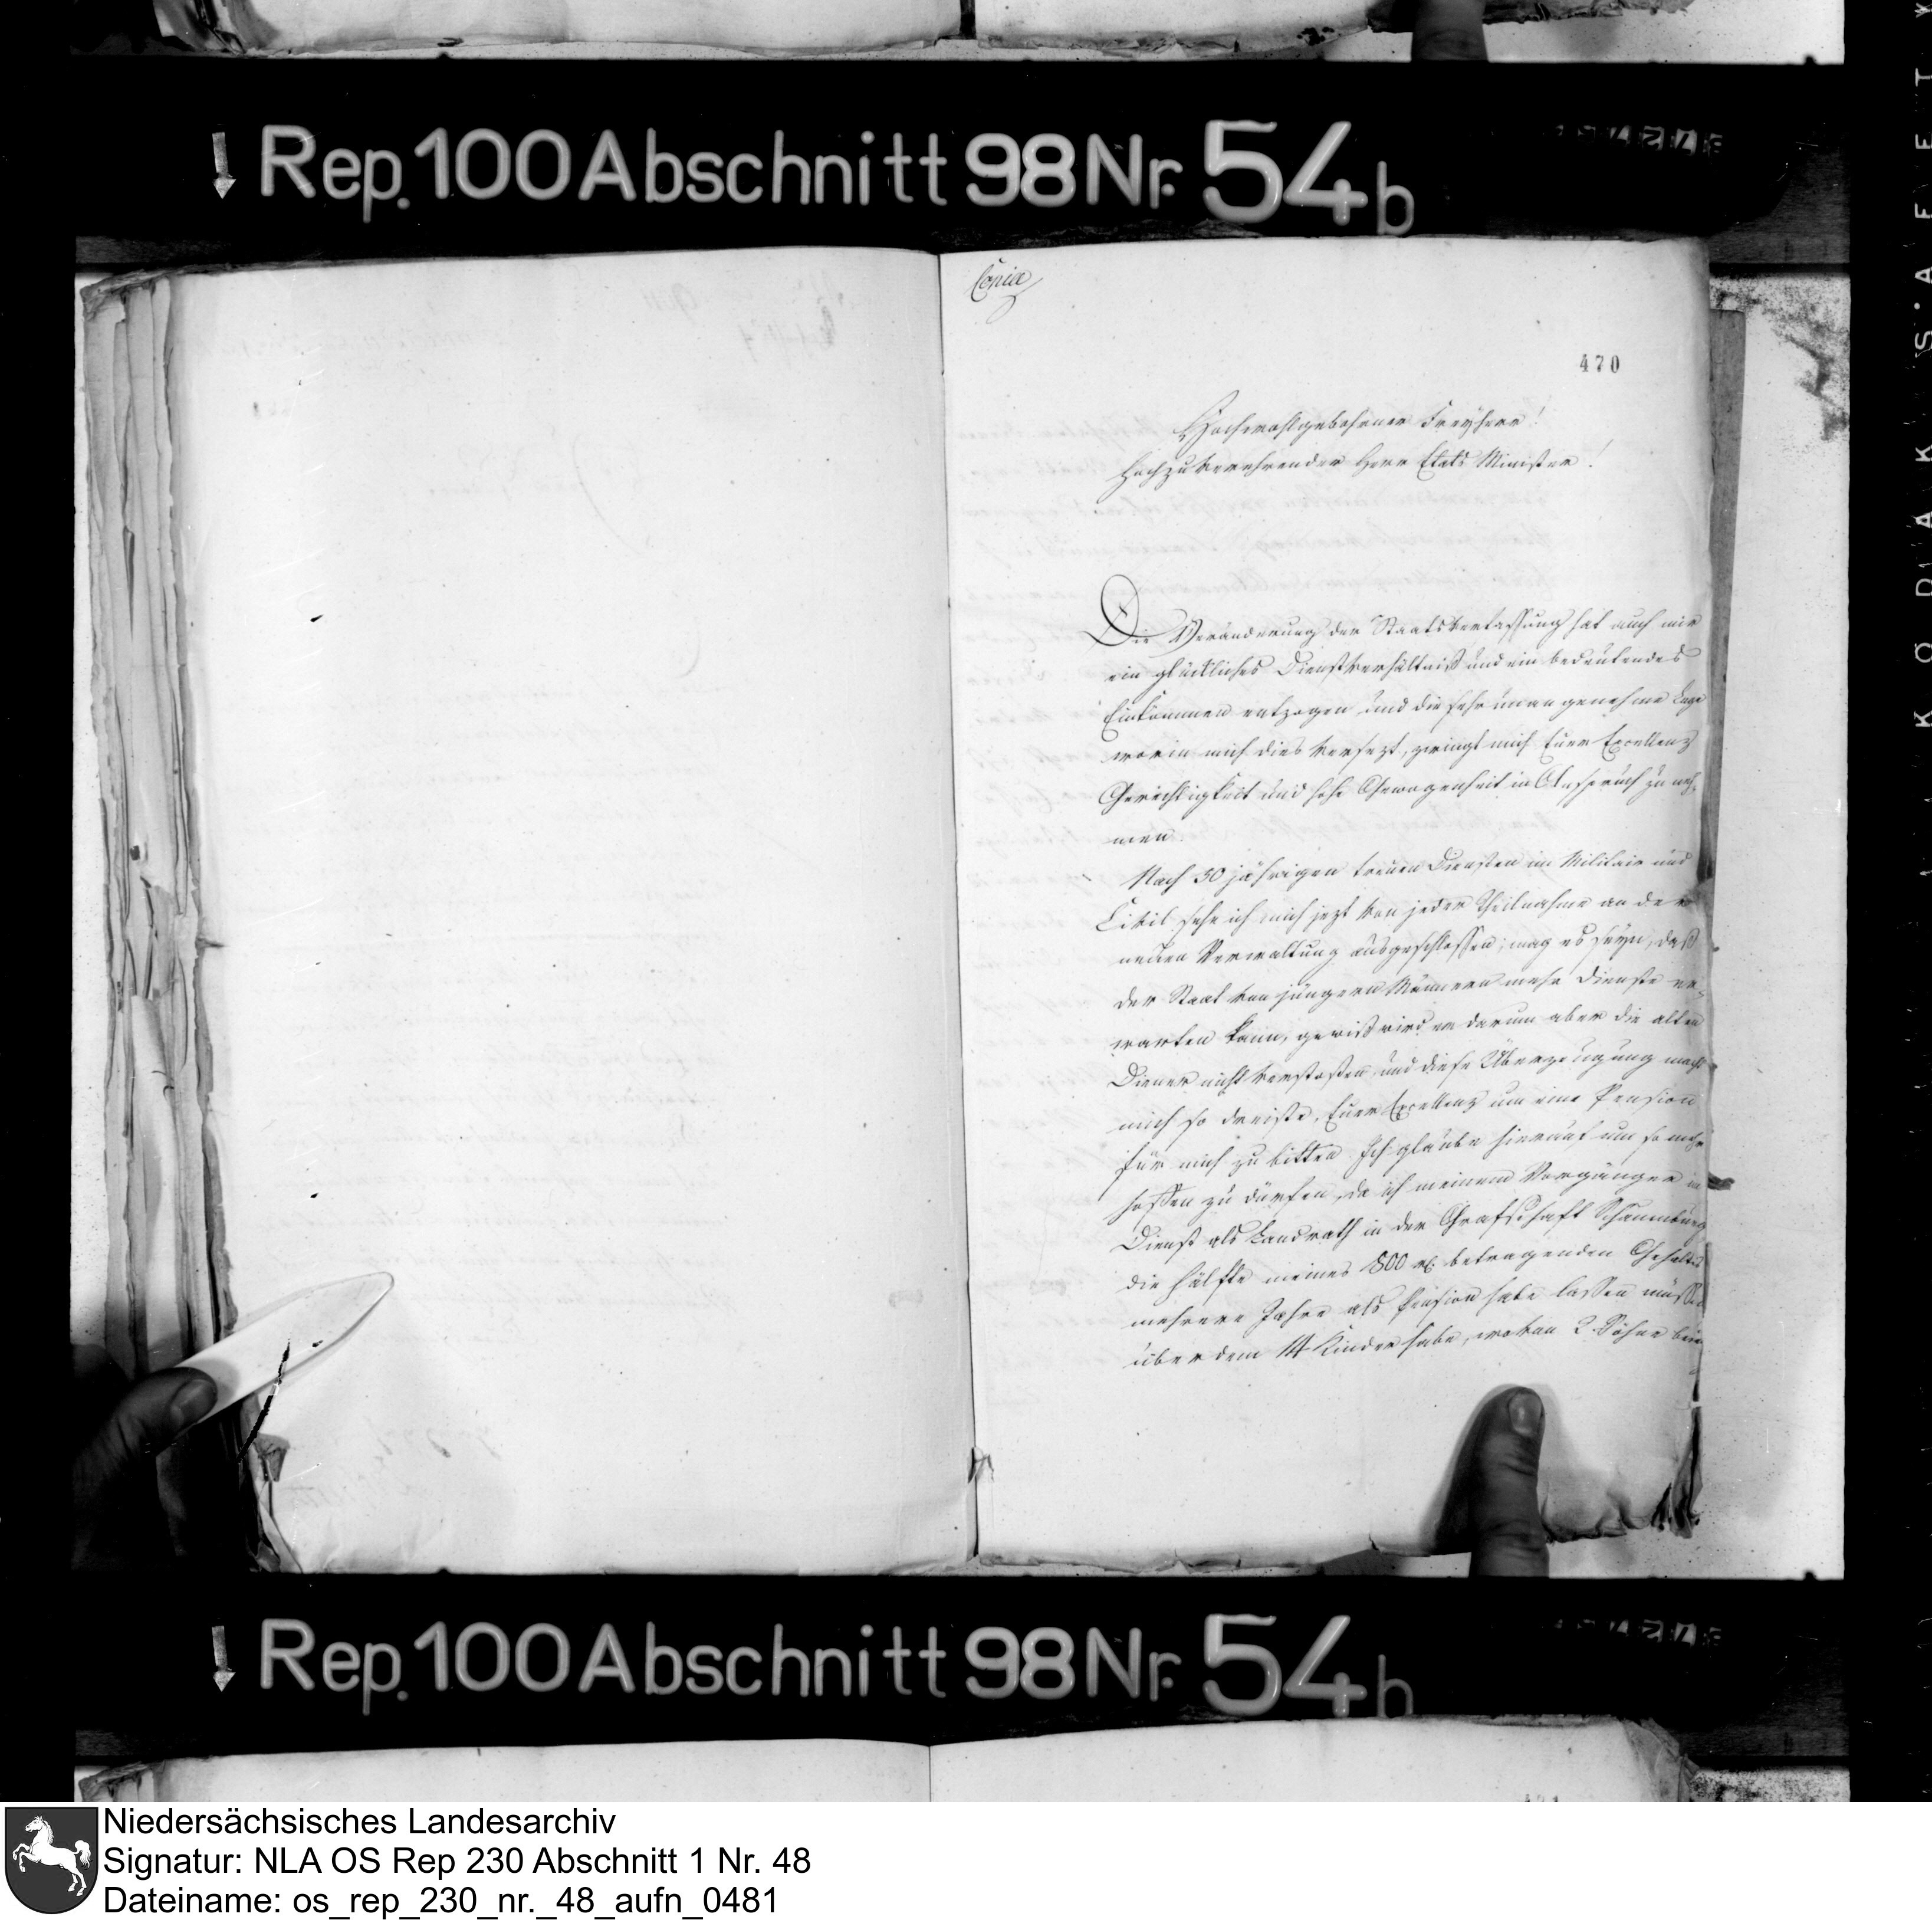 Rep. 100 Abschnitt 98 Nr. 54 b
Copia
470
Hochwohlgebohrner Freyherr!
Hochzuverehrender Herr Etats Minister!
Die Veränderung der Staatsverfassung hat auch mir
ein glückliches Dienstverhältniß und ein bedeutendes
Einkommen entzogen und die sehr unangenehme Lage
worin mich dies versezt, zwingt mich Euer Excellenz
Gerechtigkeit und hohe Gewogenheit in Anspruch zu neh,
men.
Nach 30 jährigen treuen Diensten im Militair und
Civil sehe ich mich jezt von jeder Theilnahme an der
neuen Verwaltung ausgeschlossen; mag es seyn, daß
der Staat von jüngern Männern mehr Dienste er-
warten kann, gewiß wird er darum aber die alten
Diener nicht verstoßen, und diese Überzeugung macht
mich so dreiste, Euer Excellenz um eine Pension
für mich zu bitten. Ich glaube hierauf um so mehr
hoffen zu dürfen, da ich meinem Vorgänger im
Dienst als Landrath in der Grafschaft Schaumburg
die Hälfte meines 800 rt. betragenden Gehaltes
mehrere Jahre als Pension habe lassen müssen
über dem 14 Kinder habe, wovon 2 Söhne beim
Rep. 100 Abschnitt 98 Nr. 54 b
Niedersächsisches Landesarchiv
Signatur: NLA OS Rep 230 Abschnitt 1 Nr. 48
Dateiname: os_rep_230_nr._48_aufn_0481